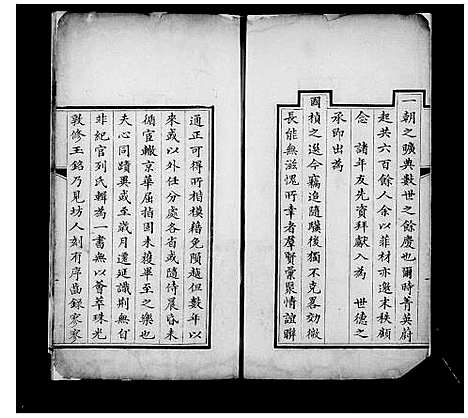 一朝之曠典數世之餘慶也爾時菁英蔚
起共六百餘人余以菲材亦邀末秩顧
念　諸年友先資拜獻入為　世德之
承即出為
國楨之選今竊追隨驥後獨不克畧効微
長能無滋愧所幸者羣賢彙聚情誼聯
通正可得所楷模藉免隕越但數年以
來或以外任分處各省或隨侍晨昏未
獲宣轍京華屈指固未獲畢至之樂也
夫心同蹟異或至歲月遷延識荆無自
非紀官列氏輯為一書無以薈萃珠光
敦修玉銘乃見坊人刻有序齒錄寥寥